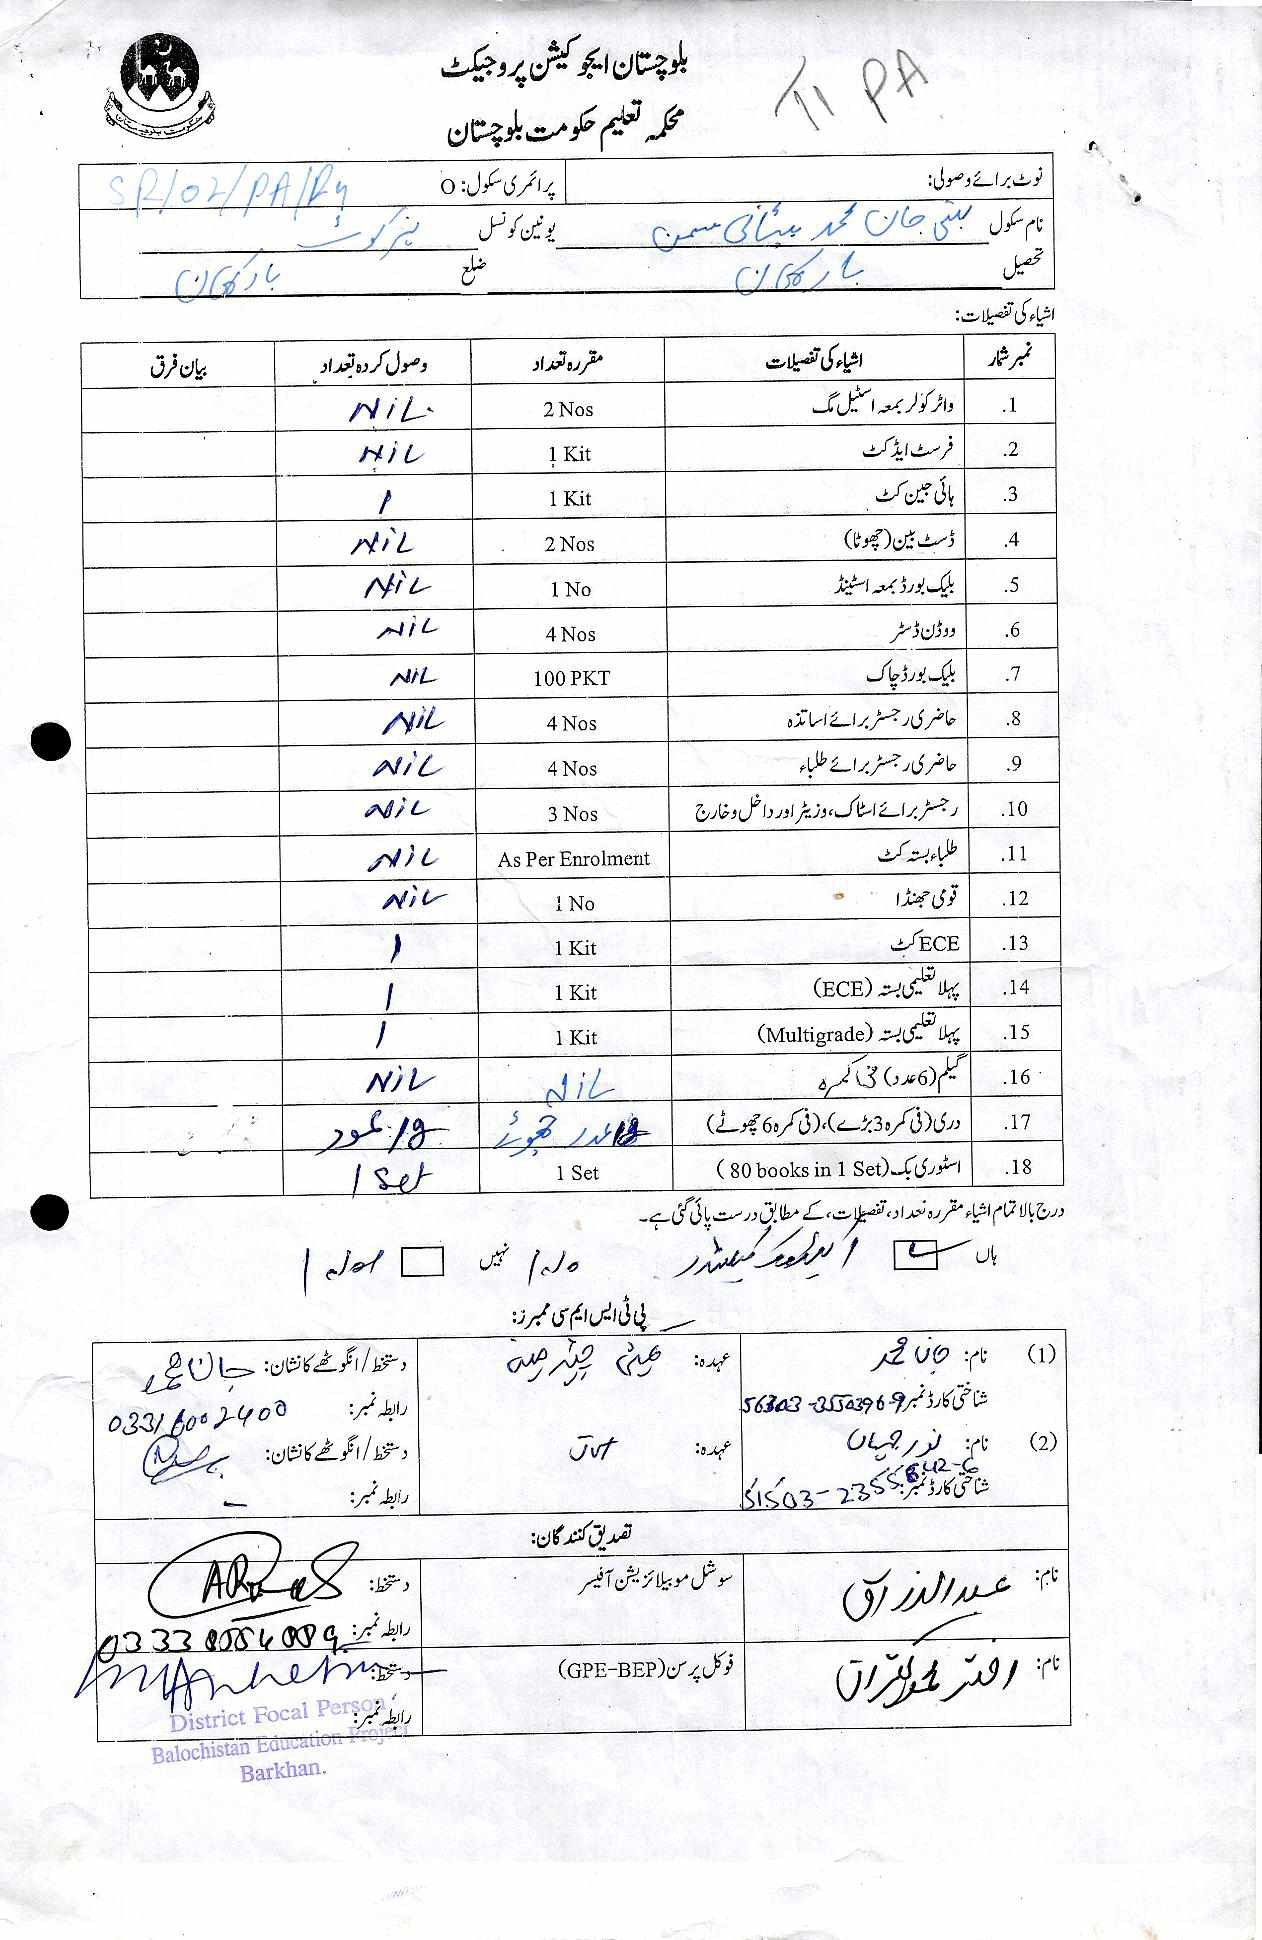 TI PA
بلوچستان ایجوکیشن پروجیکٹ
محکمہ تعلیم حکومت بلوچستان
نوٹ برائے وصولی: پرائمری سکول: O SR/02/PA/Ry
نام سکول بستی جان محمد یونین کونسل
تحصیل بارکھان ضلع بارکھان
اشیاء کی تفصیلات:
نمبر شمار اشیاء کی تفصیلات مقررہ تعداد وصول کردہ تعداد بیان فرق
1. واٹر کولر بمعہ اسٹیل مگ 2 Nos NiL
2. فرسٹ ایڈ کٹ 1 Kit NiL
3. ہائی جین کٹ 1 Kit 1
4. ڈسٹ بین (چھوٹا) 2 Nos NiL
5. بلیک بورڈ بمعہ اسٹینڈ 1 No NiL
6. ووڈن ڈسٹر 4 Nos NiL
7. بلیک بورڈ چاک 100 PKT NiL
8. حاضری رجسٹر برائے اساتذہ 4 Nos NiL
9. حاضری رجسٹر برائے طلباء 4 Nos NiL
10. رجسٹر برائے اسٹاک، وزیٹر اور داخل و خارج 3 Nos NiL
11. طلباء بستہ کٹ As Per Enrolment NiL
12. قومی جھنڈا 1 No NiL
13. ECE کٹ 1 Kit 1
14. پہلا تعلیمی بستہ (ECE) 1 Kit 1
15. پہلا تعلیمی بستہ (Multigrade) 1 Kit 1
16. گیلم (6 عدد) فی کمرہ NiL NiL
17. دری (فی کمرہ 3 بڑے)، (فی کمرہ 6 چھوٹے) عدد چھوٹے
18. اسٹوری بک (80 books in 1 Set) 1 Set 1 Set
درج بالا تمام اشیاء مقررہ تعداد، تفصیلات، کے مطابق درست پائی گئی ہے۔
ہاں نہیں
پی ٹی ایس ایم سی ممبرز:
(1) نام: جان محمد عہدہ: دستخط/انگوٹھے کا نشان: جان محمد
شناختی کارڈ نمبر 56303-3550396-9 رابطہ نمبر: 03316002400
(2) نام: نور جہاں عہدہ: Jvt دستخط/انگوٹھے کا نشان:
شناختی کارڈ نمبر: رابطہ نمبر: –
تصدیق کنندگان:
نام: عبدالرزاق سوشل موبیلائزیشن آفیسر دستخط:
رابطہ نمبر:
نام: اختر محمد فوکل پرسن (GPE-BEP) دستخط:
رابطہ نمبر:
District Focal Person
Balochistan Education Project
Barkhan.